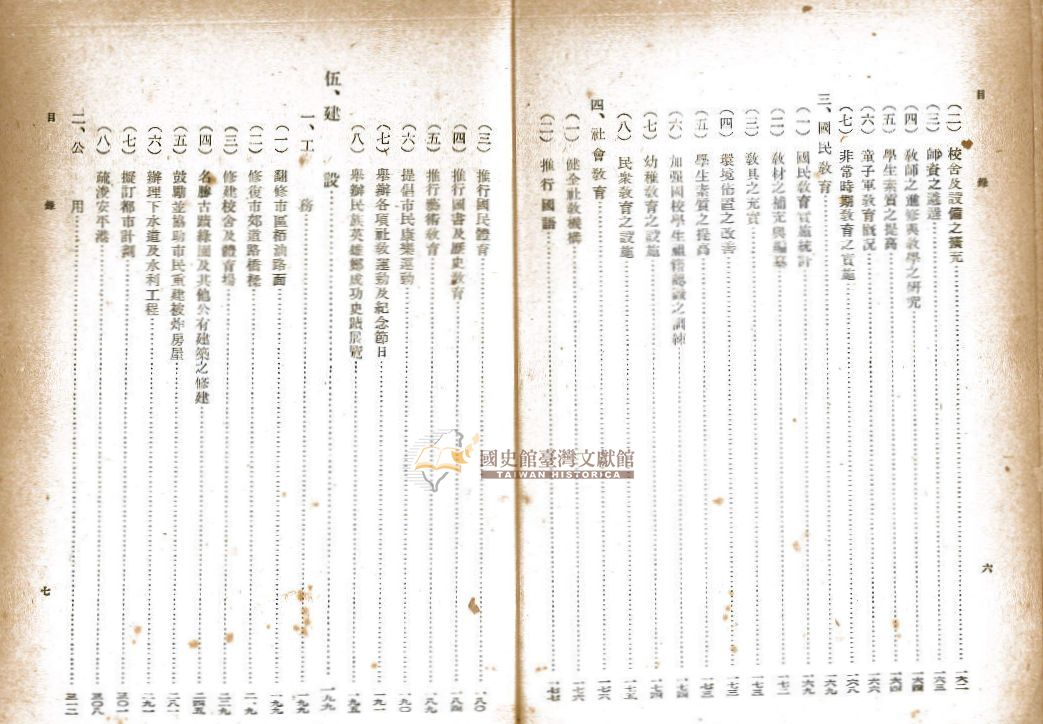 目錄
六
(二) 校舍及設備之擴充 一六二
(三) 師資之遴選 一六三
(四) 教師之進修與教學之研究 一六四
(五) 學生素質之提高 一六四
(六) 童子軍教育概況 一六六
(七) 非常時期教育之實施 一六八
三、國民教育 一六九
(一) 國民教育實施統計 一六九
(二) 教材之補充與編纂 一七二
(三) 教具之充實 一七三
(四) 環境佈置之改善 一七三
(五) 學生素質之提高 一七三
(六) 加强國校學生 之訓練 一七四
(七) 幼稚教育之設施 一七四
(八) 民衆教育之設施 一七五
四、社會教育 一七六
(一) 健全社教機構 一七六
(二) 推行國語 一七七
(三) 推行國民體育 一八〇
(四) 推行圖書及歷史教育 一八四
(五) 推行藝術教育 一八九
(六) 提倡市民康樂運動 一九〇
(七) 舉辦各項社教運動及紀念節日 一九一
(八) 舉辦民族英雄鄭成功史蹟展覽 一九五
伍、建設 一九九
一、工務 一九九
(一) 翻修市區柏油路面 一九九
(二) 修復市郊道路橋樑
(三) 修建校舍及體育場 二二九
(四) 名勝古蹟綠園及其他公有建築之修建 二四五
(五) 鼓勵並協助市民重建被炸房屋 二八一
(六) 辦理下水道及水利工程 二九一
(七) 擬訂都市計劃 三〇一
(八) 疏浚安平港 三〇八
二、公用 三一二
目錄
七
國史館臺灣文獻館
TAIWAN HISTORICA